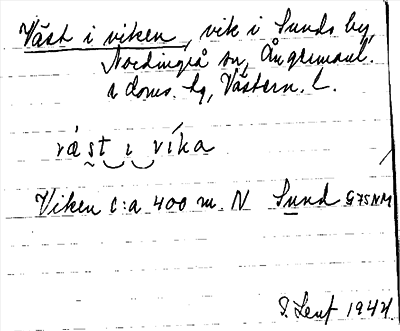 Väst i viken, vik i Sunds by,
Nordingrå sn, Ångermanl.
s doms. hg, Västern. l.
väst i víka
Viken c:a 400 m. N Sund G75NM
S. Lenf 1944